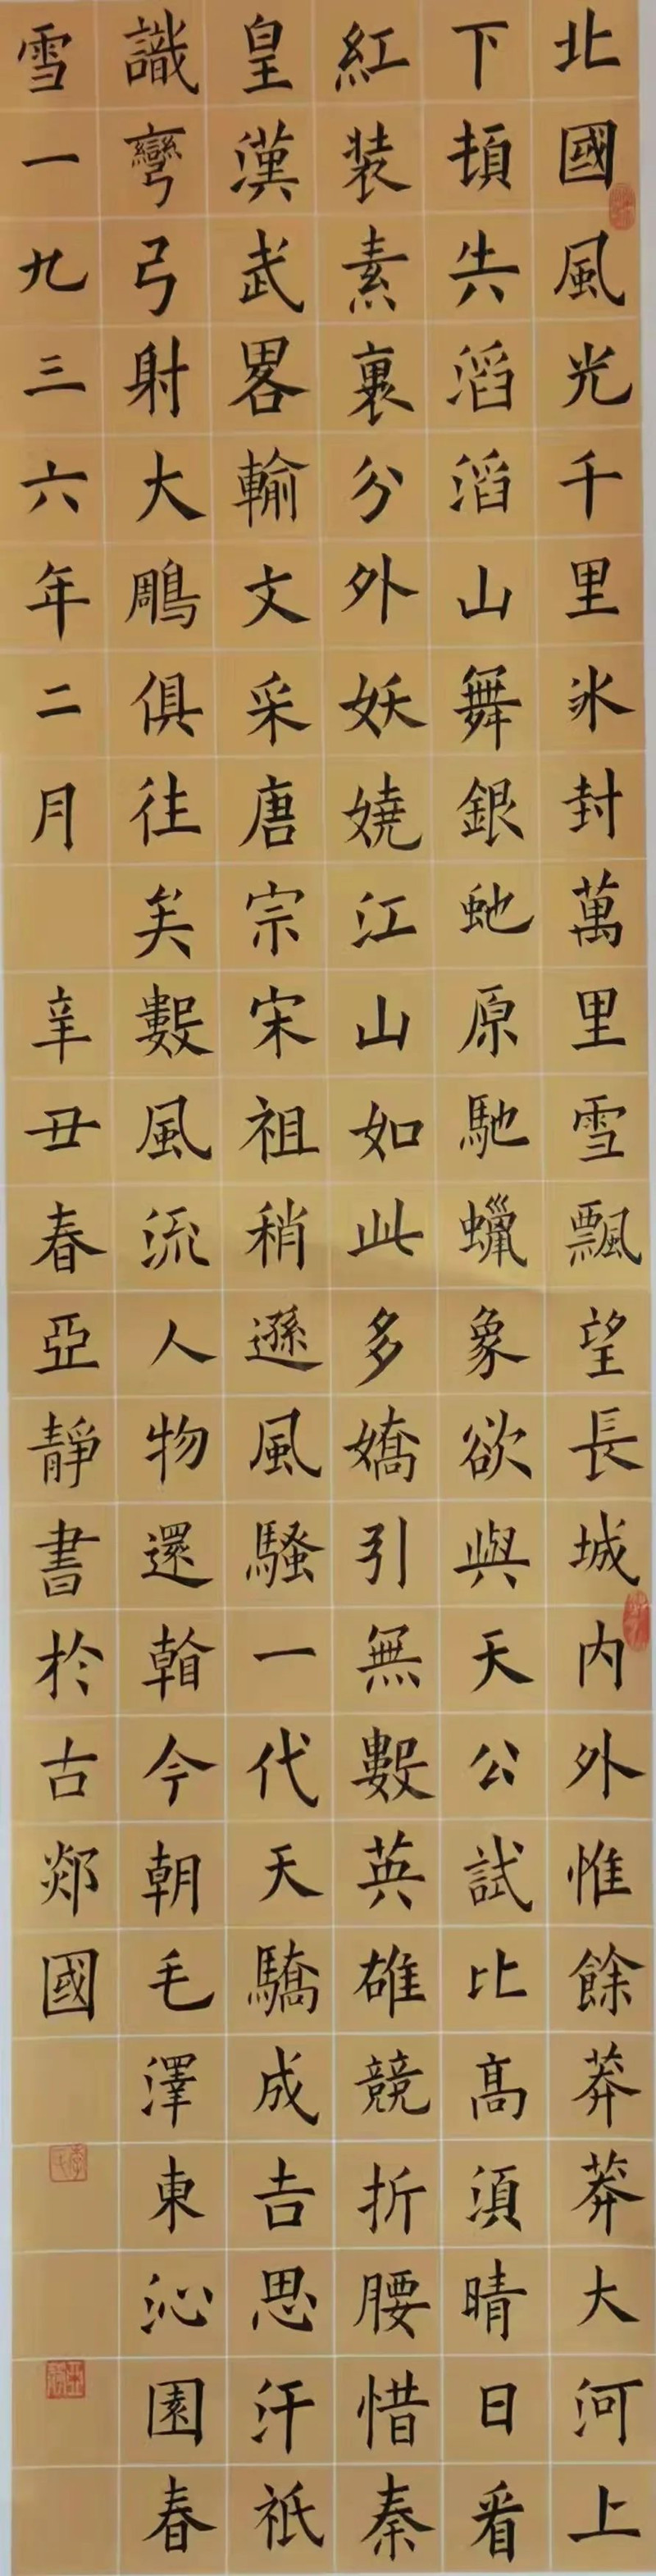 北國風光千里氷封萬里雪飄望長城内外惟餘莽莽大河上
下頓失滔滔山舞銀虵原馳蠟象欲與天公試比高須晴日看
紅装素裹分外妖嬈江山如此多嬌引無數英雄競折腰惜秦
皇漢武畧輸文采唐宗宋祖稍遜風騷一代天驕成吉思汗祇
識彎弓射大鵰俱往矣數風流人物還看今朝毛澤東沁園春
雪一九三六年二月 辛丑春亞靜書於古郯國